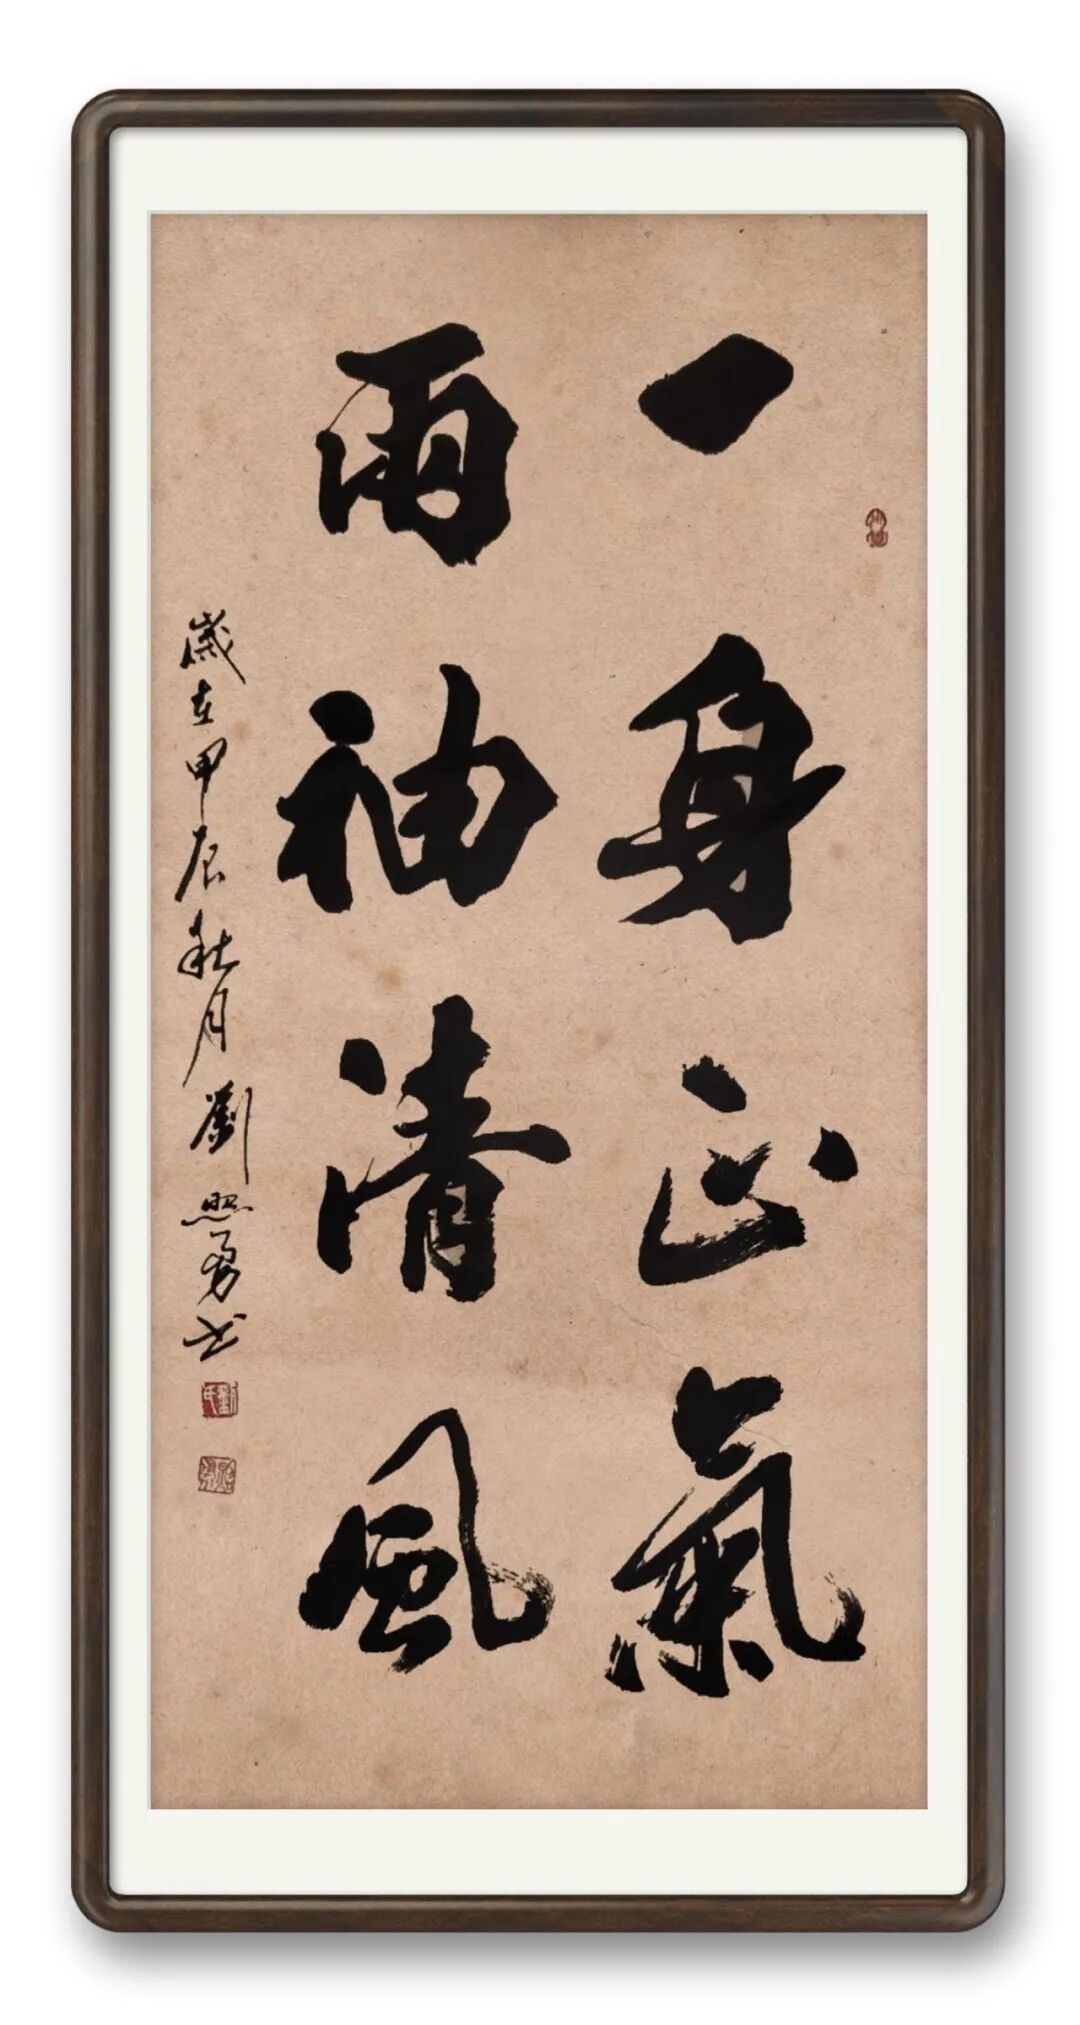 一身正氣
兩袖清風
歲在甲辰秋月劉照勇书
劉氏